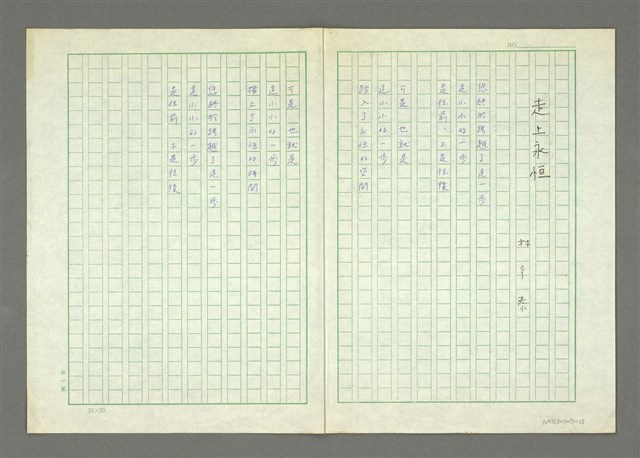 NO.
走上永恒
林亨泰
您終於跨越了這一步
這小小的一步
是往前,不是往後
可是 也就是
這小小的一步
踏入了永恒的空間
可是 也就是
這小小的一步
踏上了永恒的時間
您終於跨越了這一步
這小小的一步
是往前 不是往後
25×25